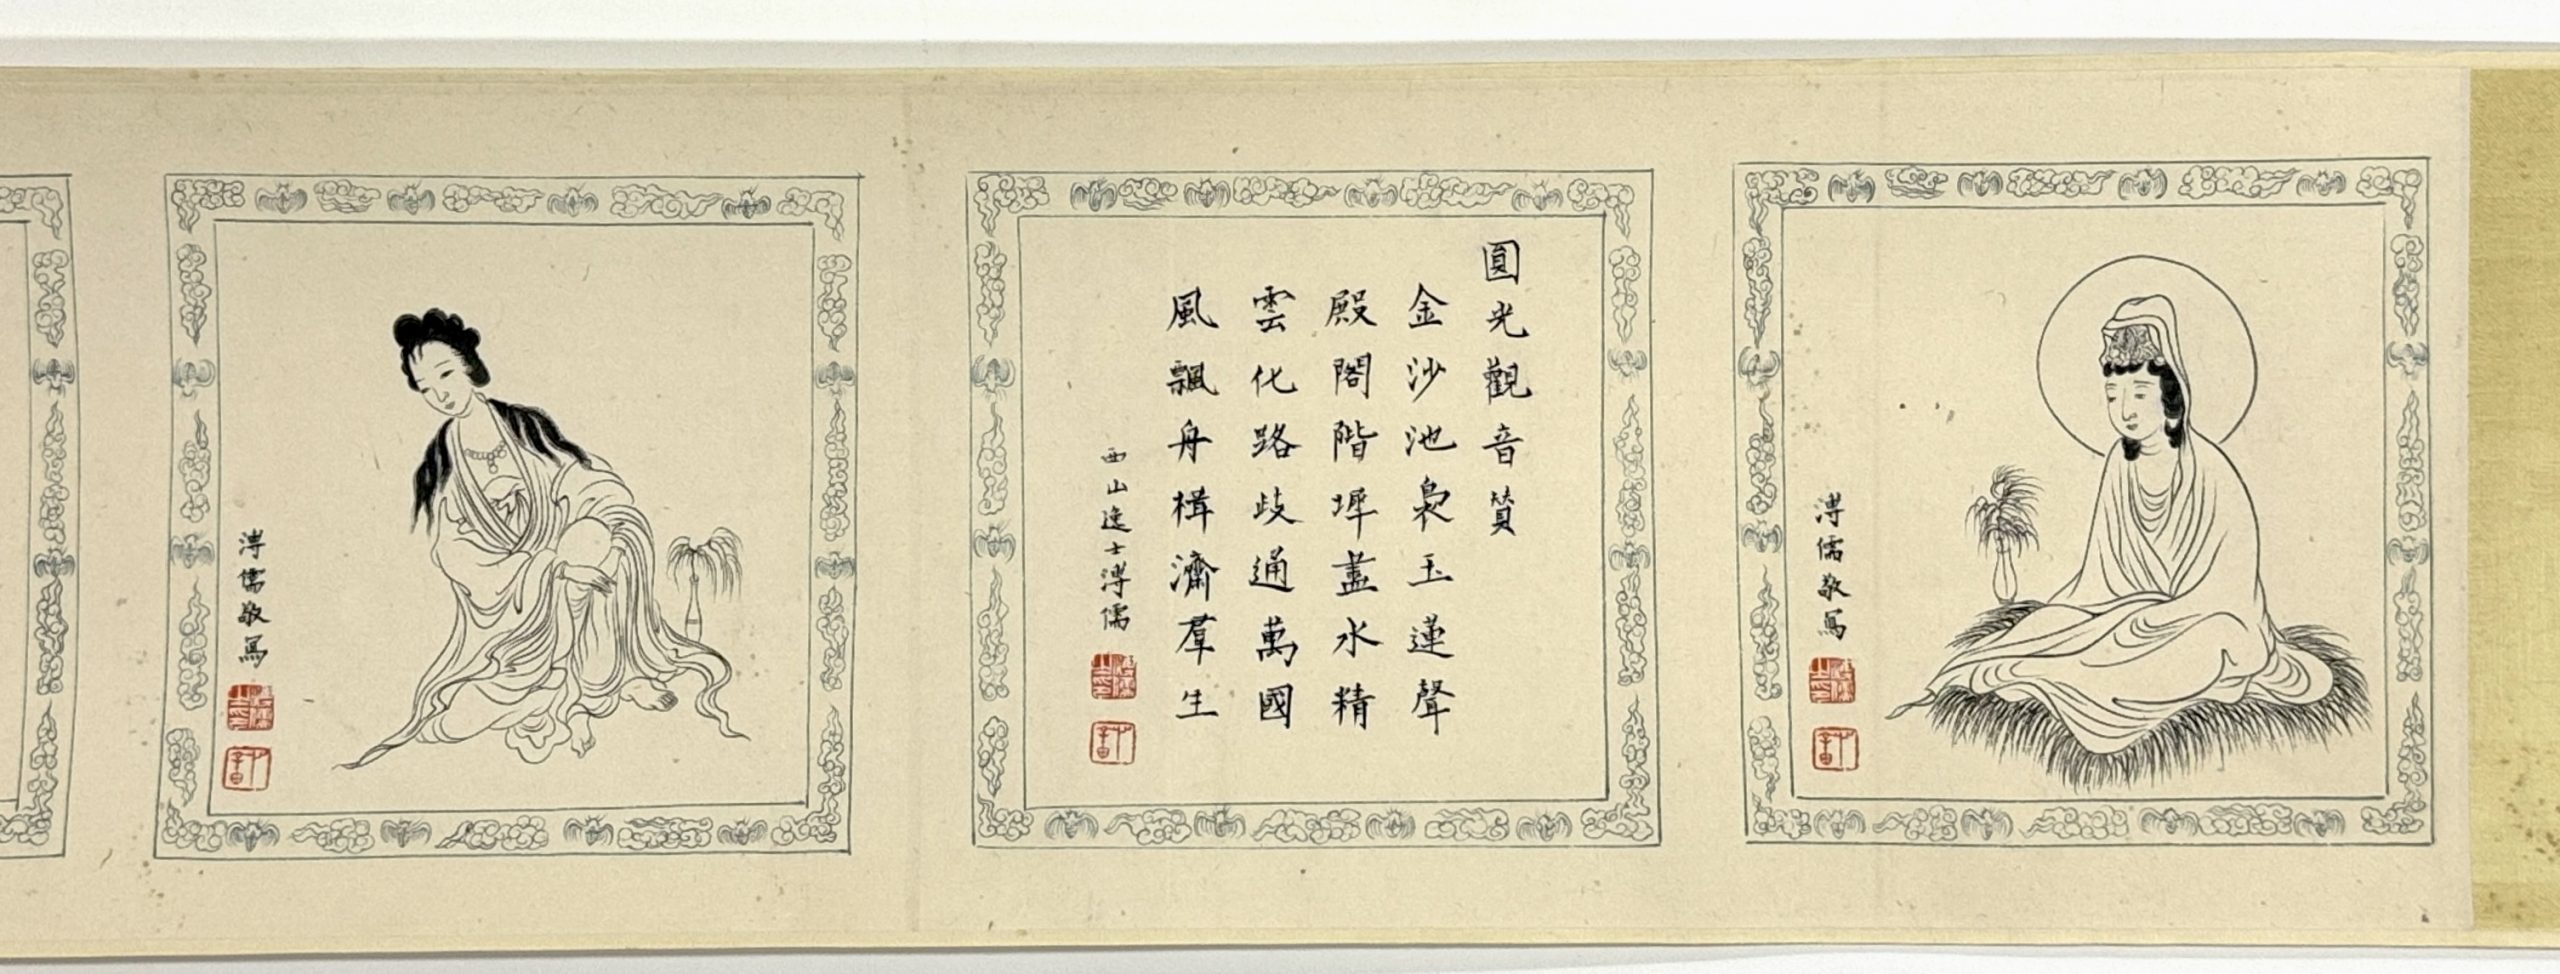 溥儒敬寫
圓光觀音贊
金沙池裊玉蓮聲
殿閣階墀盡水精
雲化路歧通萬國
風飄舟楫濟羣生
西山逸士溥儒
溥儒敬寫